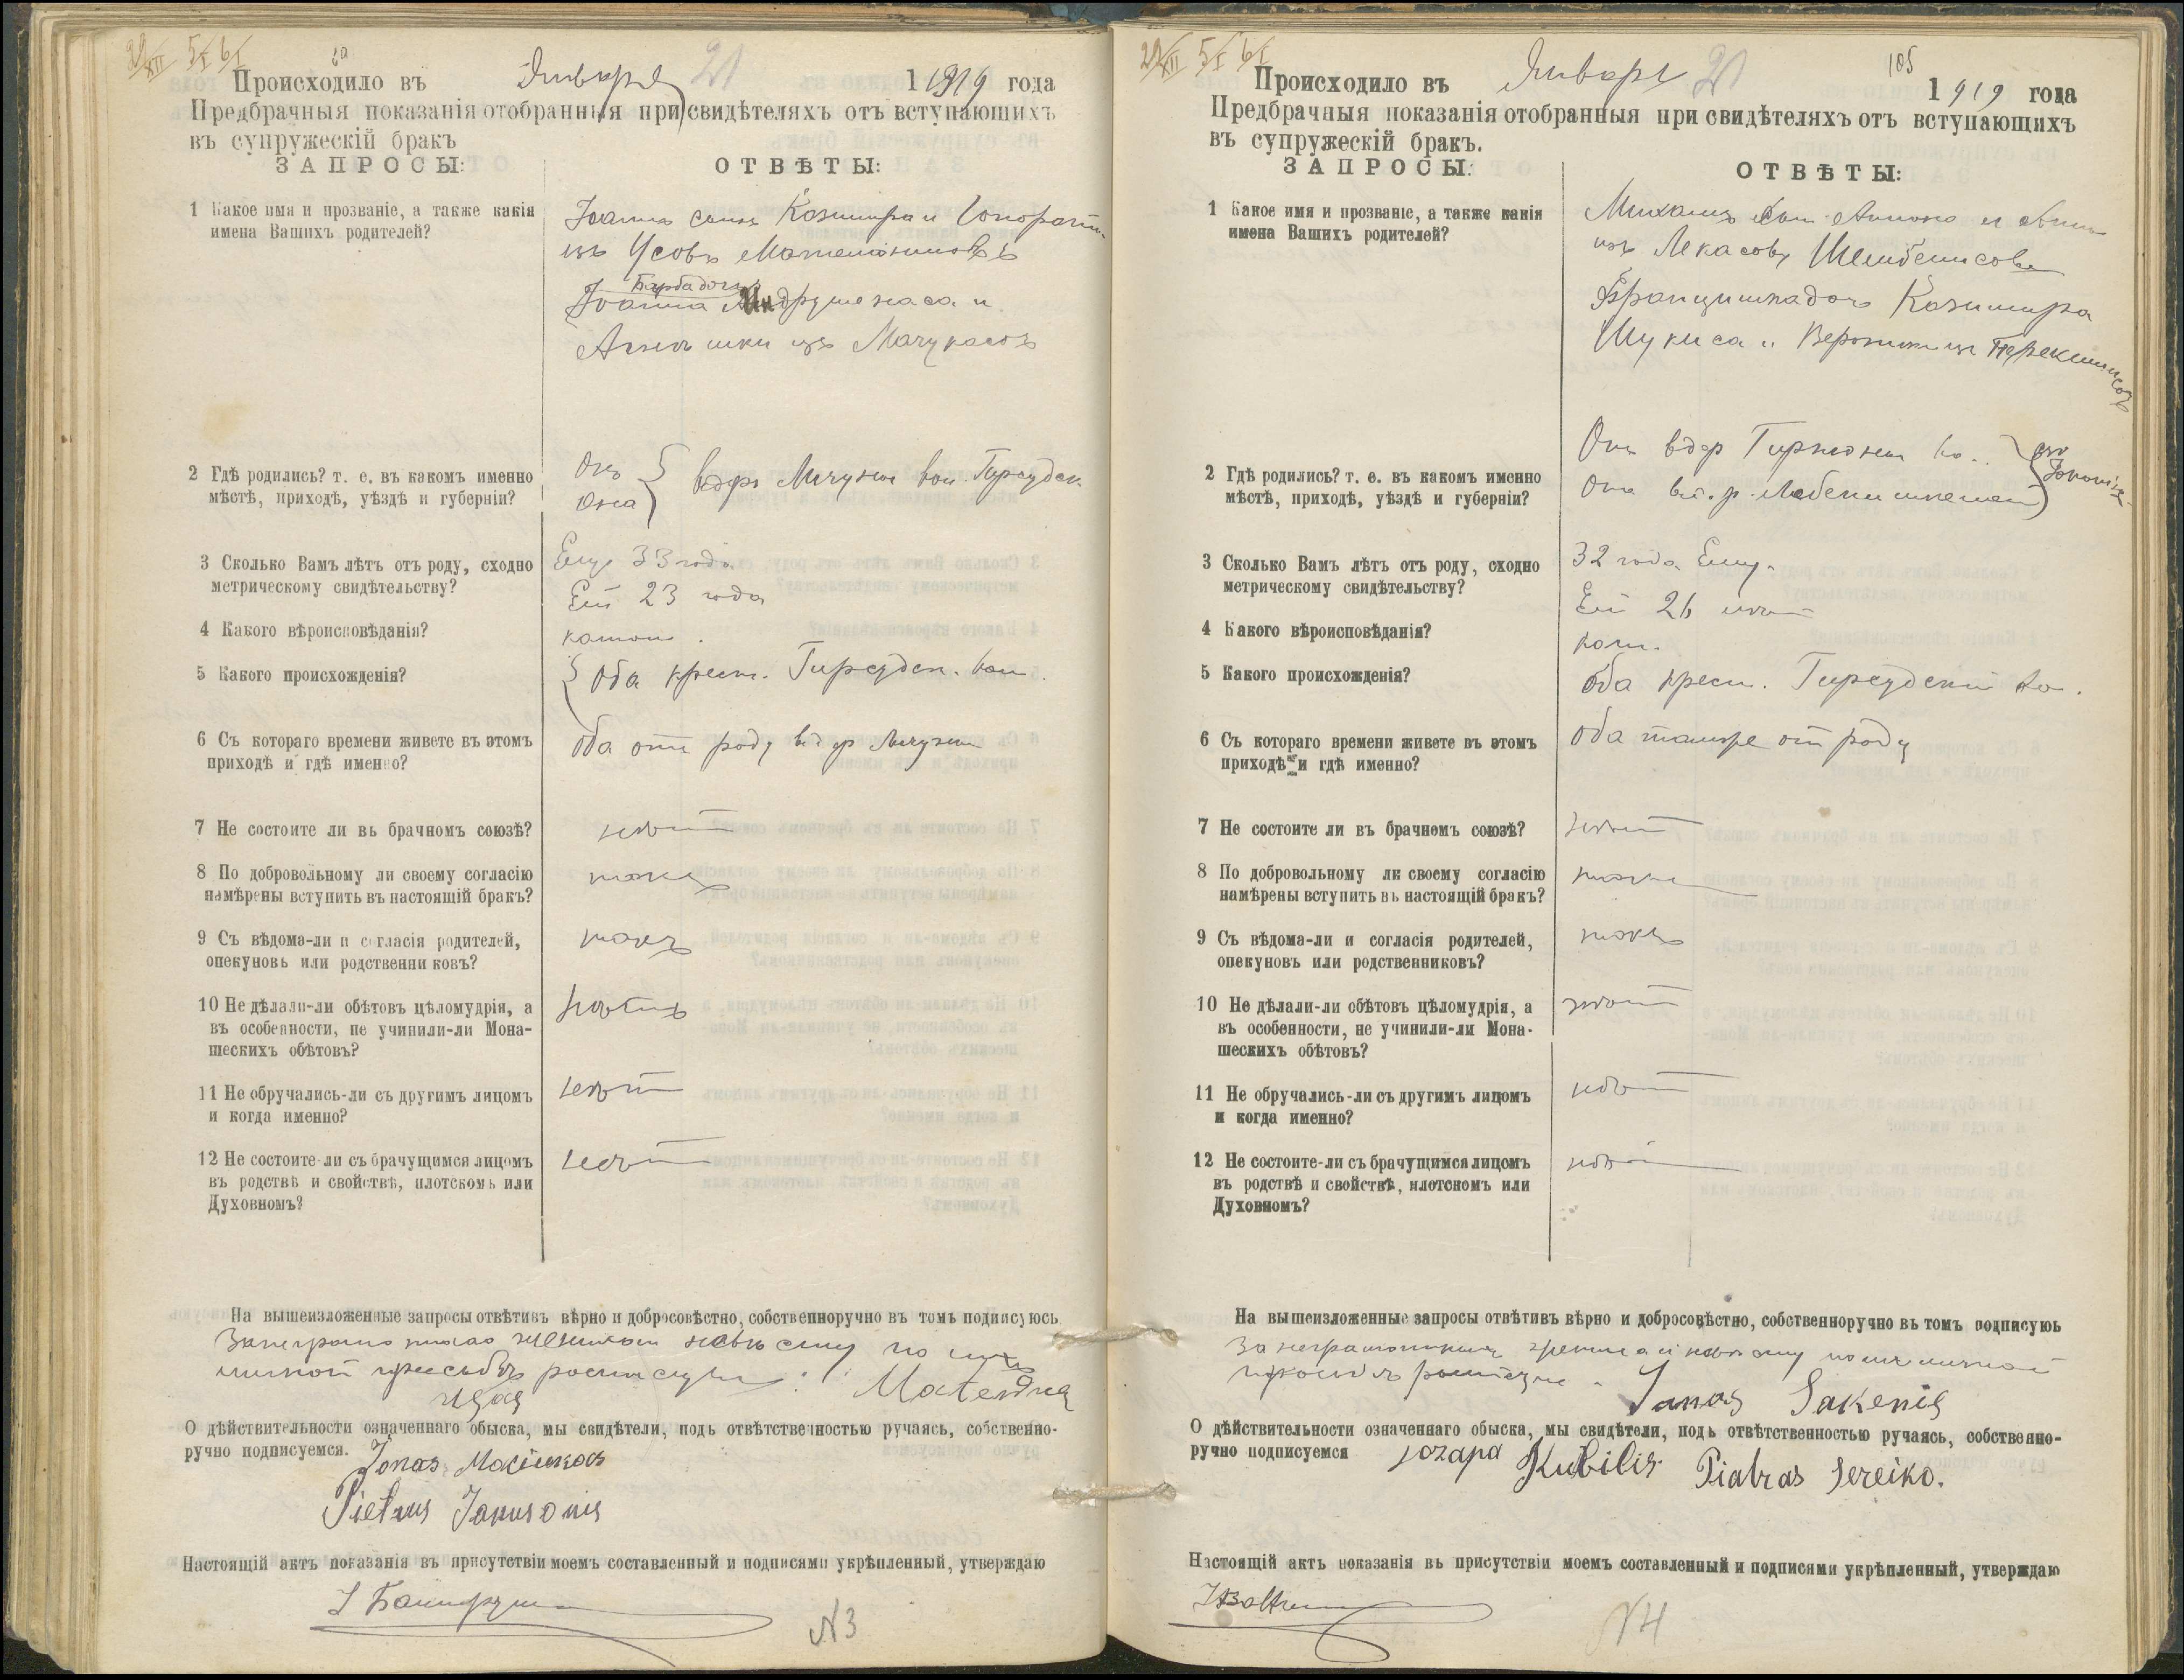 22/XII 5/I 6/I
Происходило въ Января 21 1919 года
Предбрачныя показанія отобранныя при свидѣтеляхъ отъ вступающихъ
въ супружескій бракъ
ЗАПРОСЫ: ОТВѢТЫ:
1 Какое имя и прозваніе, а также какія
имена Вашихъ родителей?
Іоаннъ сынъ Казиміра и
изъ Усовъ
Іоанна и
изъ
2 Гдѣ родились? т. е. въ какомъ именно
мѣстѣ, приходѣ, уѣздѣ и губерніи?
Онъ
Она
3 Сколько Вамъ лѣтъ отъ роду, сходно
метрическому свидѣтельству?
Ему 33 года
Ей 23 года
4 Какого вѣроисповѣданія?
катол.
5 Какого происхожденія?
Оба крест. Гирсудск. вол.
6 Съ котораго времени живете въ этомъ
приходѣ и гдѣ именно?
Оба отъ роду в дер
7 Не состоите ли въ брачномъ союзѣ?
нѣтъ
8 По добровольному ли своему согласію
намѣрены вступить въ настоящій бракъ?
такъ
9 Съ вѣдома-ли и согласія родителей,
опекуновъ или родственниковъ?
такъ
10 Не дѣлали-ли обѣтовъ цѣломудрія, а
въ особенности, не учинили-ли Мона-
шескихъ обѣтовъ?
нѣтъ
11 Не обручались-ли съ другимъ лицомъ
и когда именно?
нѣтъ
12 Не состоите-ли съ брачущимся лицомъ
въ родствѣ и свойствѣ, плотскомъ или
Духовномъ?
нѣтъ
На вышеизложенные запросы отвѣтивъ вѣрно и добросовѣстно, собственноручно въ томъ подписуюсь
невѣсту по ихъ
личной просьбѣ росписуюсь
О дѣйствительности означеннаго обыска, мы свидѣтели, подъ отвѣтственностью ручаясь, собственно-
ручно подписуемся. Jonas
Pietrus Janusonis
Настоящій актъ показанія въ присутствіи моемъ составленный и подписями укрѣпленный, утверждаю
N3
22/XII 5/I 6/I
105
Происходило въ Января 21 1919 года
Предбрачныя показанія отобранныя при свидѣтеляхъ отъ вступающихъ
въ супружескій бракъ.
ЗАПРОСЫ: ОТВѢТЫ:
1 Какое имя и прозваніе, а также какія
имена Вашихъ родителей?
Михаилъ сын Антона и Анны
изъ Лекасовъ
Францишка дочь Казиміра
Шукиса и
2 Гдѣ родились? т. е. въ какомъ именно
мѣстѣ, приходѣ, уѣздѣ и губерніи?
Он в дер
Она в д.р.
3 Сколько Вамъ лѣтъ отъ роду, сходно
метрическому свидѣтельству?
32 года Ему
Ей 26 лѣтъ
4 Какого вѣроисповѣданія?
кат.
5 Какого происхожденія?
Оба крест. Гирсудской во.
6 Съ котораго времени живете въ этомъ
приходѣ и гдѣ именно?
Оба тамже от роду
7 Не состоите ли въ брачномъ союзѣ?
нѣтъ
8 По добровольному ли своему согласію
намѣрены вступить въ настоящій бракъ?
такъ
9 Съ вѣдома-ли и согласія родителей,
опекуновъ или родственниковъ?
такъ
10 Не дѣлали-ли обѣтовъ цѣломудрія, а
въ особенности, не учинили-ли Мона-
шескихъ обѣтовъ?
нѣтъ
11 Не обручались-ли съ другимъ лицомъ
и когда именно?
нѣтъ
12 Не состоите-ли съ брачущимся лицомъ
въ родствѣ и свойствѣ, плотскомъ или
Духовномъ?
нѣтъ
На вышеизложенные запросы отвѣтивъ вѣрно и добросовѣстно, собственноручно въ томъ подписуюь
За неграмотныхъ жениха и невѣсту по ихъ личной
просьбѣ Janas Sakenis
О дѣйствительности означеннаго обыска, мы свидѣтели, подъ отвѣтственностью ручаясь, собственно-
ручно подписуемся Jozapa Kubilis Piatras Sereiko.
Настоящій актъ показанія въ присутствіи моемъ составленный и подписями укрѣпленный, утверждаю
N4